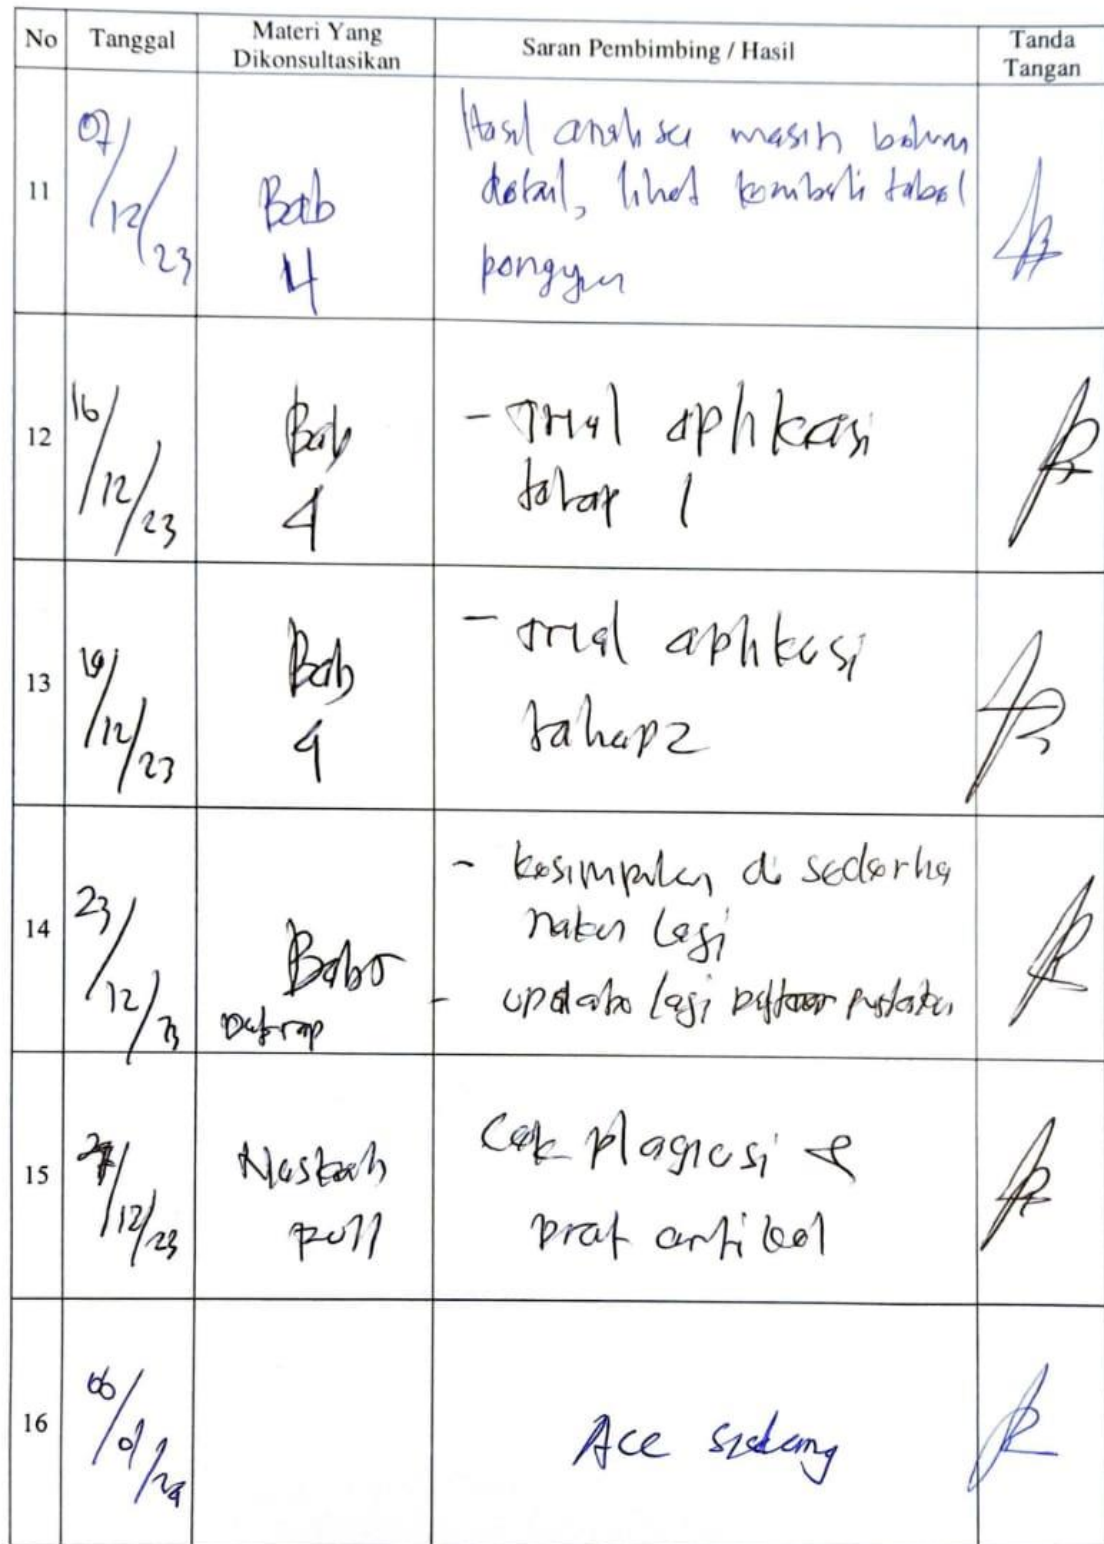 No Tanggal Materi Yang Dikonsultasikan Saran Pembimbing / Hasil Tanda Tangan
11
07/12/23
Bab
4
Hasil analisa masih belum
detail, lihat kembali tabel
12
16/12/23
Bab
4
- Trial aplikasi
tahap 1
13
19/12/23
Bab
4
- Trial aplikasi
tahap 2
14
23/12/23
Bab 5
- kesimpulan di sederha
nakan lagi
- update lagi daftar pustaka
15
27/12/23
Naskah
Full
Cek Plagiasi &
Draf artikel
16
06/01/24
Acc sidang